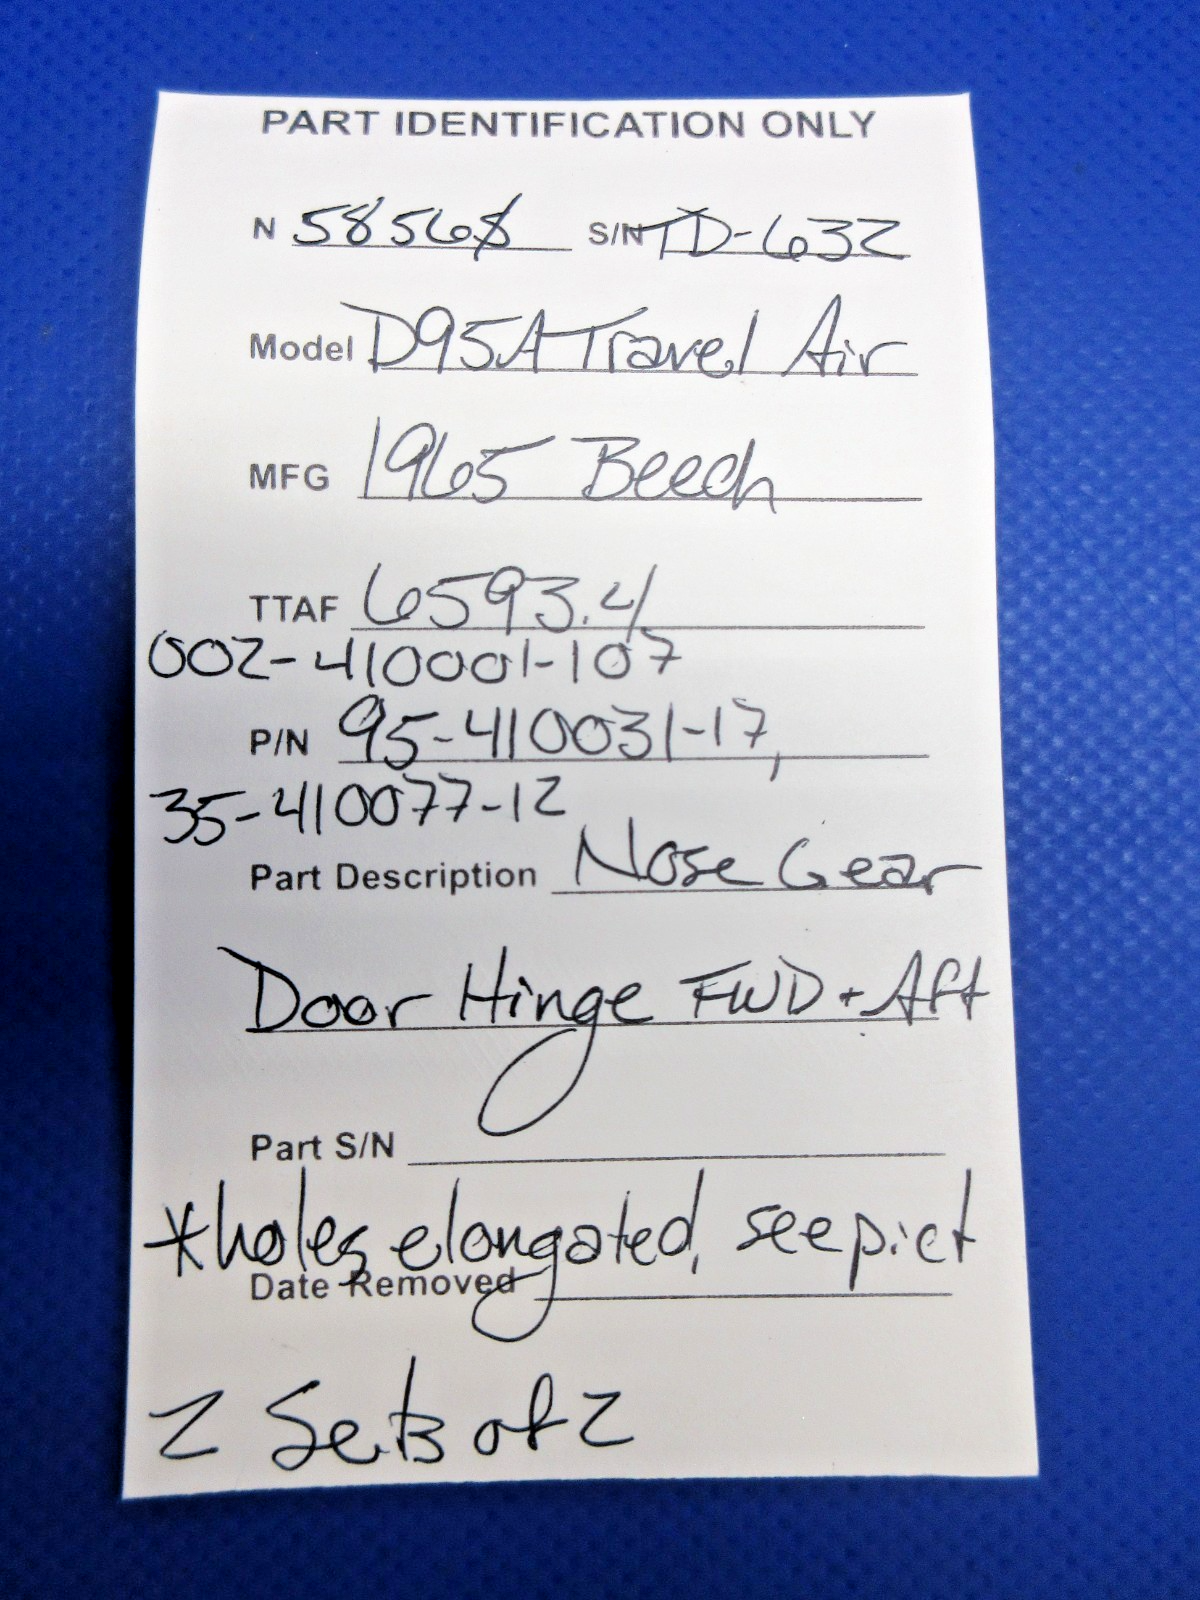 PART IDENTIFICATION ONLY
N 5856S S/N TD-632
Model D95A Travel Air
MFG 1965 Beech
TTAF 6593.4
002-410001-107
P/N 95-410031-17,
35-410077-12
Part Description Nose Gear
Door Hinge FWD + Aft
Part S/N
*holes elongated, see pict
Date Removed
2 Sets of 2